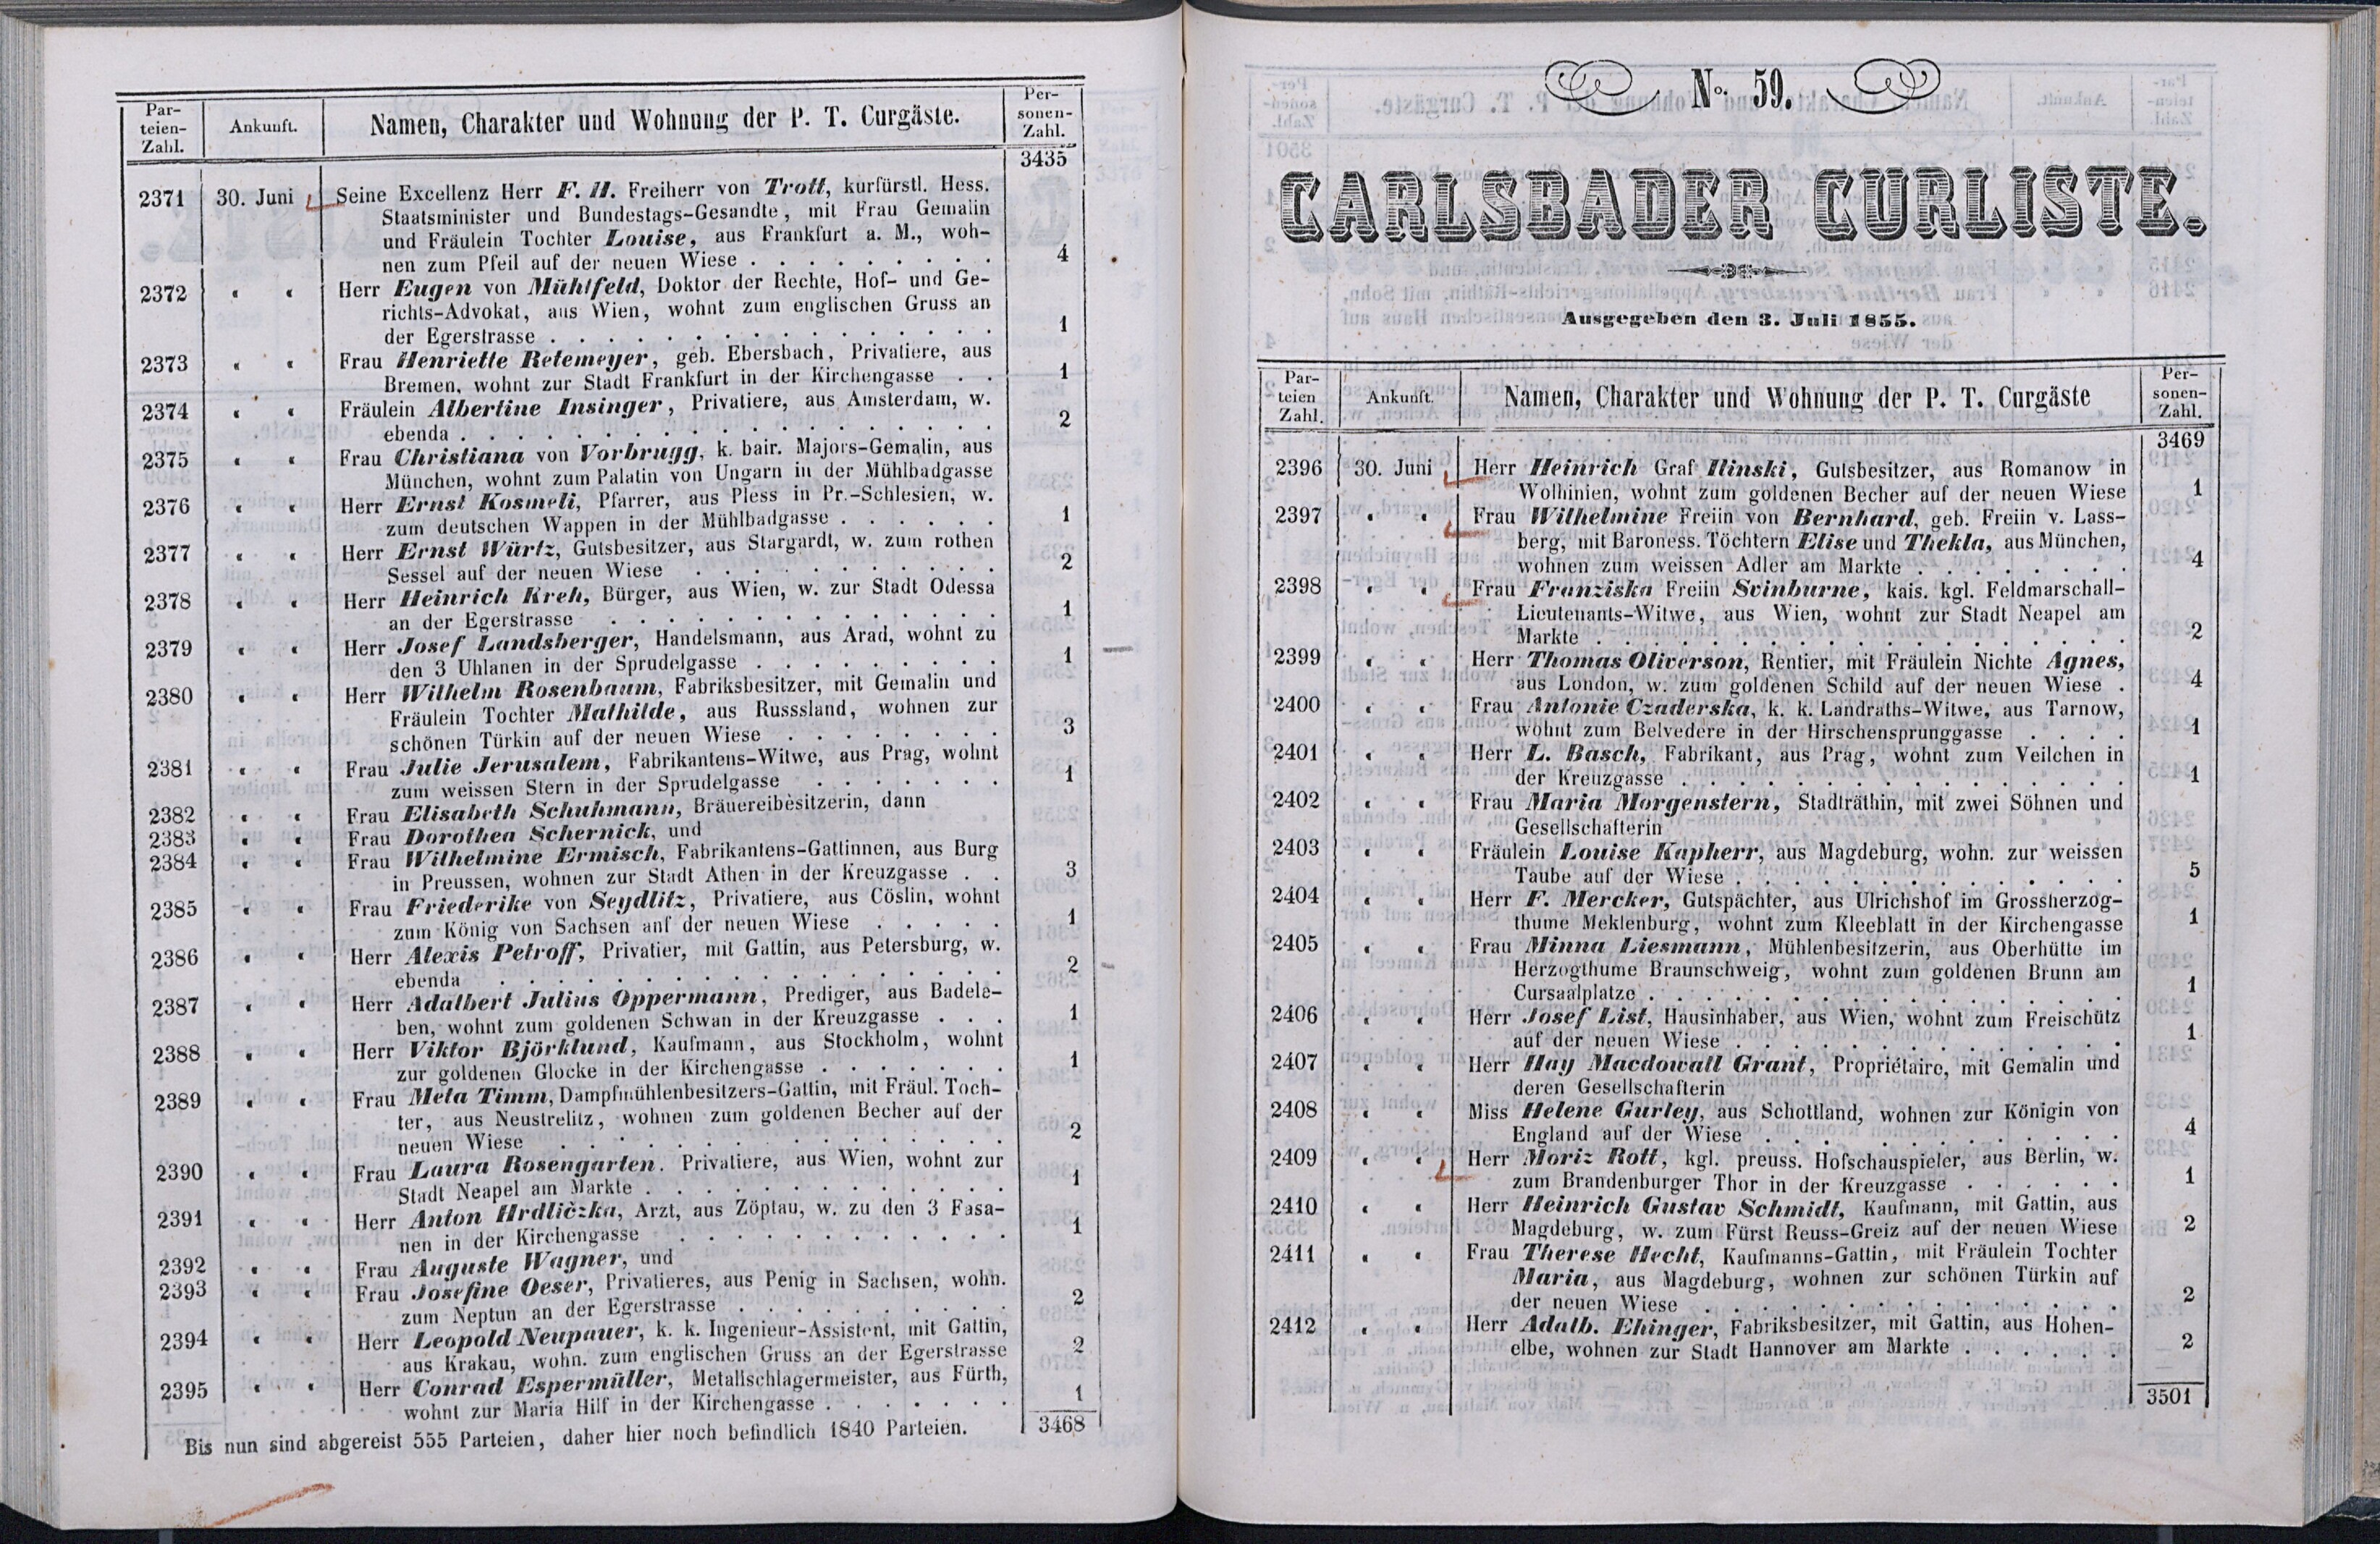 Par-
teien-
Zahl.
Ankunft.
Namen, Charakter und Wohnung der P. T. Curgäste.
Per-
sonen-
Zahl.
3435
2371 30. Juni Seine Excellenz Herr F. H. Freiherr von Trott, kurfürstl. Hess.
Staatsminister und Bundestags-Gesandte, mit Frau Gemalin
und Fräulein Tochter Louise, aus Frankfurt a. M., woh-
nen zum Pfeil auf der neuen Wiese . . . . . . . . . 4
2372 « « Herr Eugen von Mühlfeld, Doktor der Rechte, Hof- und Ge-
richts-Advokat, aus Wien, wohnt zum englischen Gruss an
der Egerstrasse . . . . . . . . . . . . . . . . 1
2373 « « Frau Henriette Retemeyer, geb. Ebersbach, Privatiere, aus
Bremen, wohnt zur Stadt Frankfurt in der Kirchengasse . . 1
2374 « « Fräulein Albertine Insinger, Privatiere, aus Amsterdam, w.
ebenda . . . . . . . . . . . . . . . . . . . 2
2375 « « Frau Christiana von Vorbrugg, k. bair. Majors-Gemalin, aus
München, wohnt zum Palatin von Ungarn in der Mühlbadgasse
2376 « « Herr Ernst Kosmeli, Pfarrer, aus Pless in Pr.-Schlesien, w.
zum deutschen Wappen in der Mühlbadgasse . . . . . . 1
2377 « « Herr Ernst Würtz, Gutsbesitzer, aus Stargardt, w. zum rothen
Sessel auf der neuen Wiese . . . . . . . . . . . 2
2378 « « Herr Heinrich Kreh, Bürger, aus Wien, w. zur Stadt Odessa
an der Egerstrasse . . . . . . . . . . . . . . 1
2379 « « Herr Josef Landsberger, Handelsmann, aus Arad, wohnt zu
den 3 Uhlanen in der Sprudelgasse . . . . . . . . . 1
2380 « « Herr Wilhelm Rosenbaum, Fabriksbesitzer, mit Gemalin und
Fräulein Tochter Mathilde, aus Russsland, wohnen zur
schönen Türkin auf der neuen Wiese . . . . . . . . 3
2381 « « Frau Julie Jerusalem, Fabrikantens-Witwe, aus Prag, wohnt
zum weissen Stern in der Sprudelgasse . . . . . . . 1
2382 « « Frau Elisabeth Schuhmann, Bräuereibesitzerin, dann
2383 « « Frau Dorothea Schernick, und
2384 « « Frau Wilhelmine Ermisch, Fabrikantens-Gattinnen, aus Burg
in Preussen, wohnen zur Stadt Athen in der Kreuzgasse . . 3
2385 « « Frau Friederike von Seydlitz, Privatiere, aus Cöslin, wohnt
zum König von Sachsen auf der neuen Wiese . . . . . 1
2386 « « Herr Alexis Petroff, Privatier, mit Gattin, aus Petersburg, w.
ebenda . . . . . . . . . . . . . . . . . . 2
2387 « « Herr Adalbert Julius Oppermann, Prediger, aus Badele-
ben, wohnt zum goldenen Schwan in der Kreuzgasse . . . 1
2388 « « Herr Viktor Björklund, Kaufmann, aus Stockholm, wohnt
zur goldenen Glocke in der Kirchengasse . . . . . . . 1
2389 « « Frau Meta Timm, Dampfmühlenbesitzers-Gattin, mit Fräul. Toch-
ter, aus Neustrelitz, wohnen zum goldenen Becher auf der
neuen Wiese . . . . . . . . . . . . . . . . 2
2390 « « Frau Laura Rosengarten. Privatiere, aus Wien, wohnt zur
Stadt Neapel am Markte . . . . . . . . . . . . . 1
2391 « « Herr Anton Hrdliczka, Arzt, aus Zöptau, w. zu den 3 Fasa-
nen in der Kirchengasse . . . . . . . . . . . . 1
2392 « « Frau Auguste Wagner, und
2393 « « Frau Josefine Oeser, Privatieres, aus Penig in Sachsen, wohn.
zum Neptun an der Egerstrasse . . . . . . . . . . 2
2394 « « Herr Leopold Neupauer, k. k. Ingenieur-Assistent, mit Gattin,
aus Krakau, wohn. zum englischen Gruss an der Egerstrasse 2
2395 « « Herr Conrad Espermüller, Metallschlagermeister, aus Fürth,
wohnt zur Maria Hilf in der Kirchengasse . . . . . . . 1
Bis nun sind abgereist 555 Parteien, daher hier noch befindlich 1840 Parteien. 3468
No. 59.
CARLSBADER CURLISTE.
Ausgegeben den 3. Juli 1855.
Par-
teien
Zahl.
Ankunft.
Namen, Charakter und Wohnung der P. T. Curgäste
Per-
sonen-
Zahl.
3469
2396 30. Juni Herr Heinrich Graf Ilinski, Gutsbesitzer, aus Romanow in
Wolhinien, wohnt zum goldenen Becher auf der neuen Wiese 1
2397 « « Frau Wilhelmine Freiin von Bernhard, geb. Freiin v. Lass-
berg, mit Baroness. Töchtern Elise und Thekla, aus München,
wohnen zum weissen Adler am Markte . . . . . . . . 4
2398 « « Frau Franziska Freiin Svinburne, kais. kgl. Feldmarschall-
Lieutenants-Witwe, aus Wien, wohnt zur Stadt Neapel am
Markte . . . . . . . . . . . . . . . . . . . 2
2399 « « Herr Thomas Oliverson, Rentier, mit Fräulein Nichte Agnes,
aus London, w. zum goldenen Schild auf der neuen Wiese . 4
2400 « « Frau Antonie Czaderska, k. k. Landraths-Witwe, aus Tarnow,
wohnt zum Belvedere in der Hirschensprunggasse . . . . 1
2401 « « Herr L. Basch, Fabrikant, aus Prag, wohnt zum Veilchen in
der Kreuzgasse . . . . . . . . . . . . . . . . 1
2402 « « Frau Maria Morgenstern, Stadträthin, mit zwei Söhnen und
Gesellschafterin
2403 « « Fräulein Louise Kapherr, aus Magdeburg, wohn. zur weissen
Taube auf der Wiese . . . . . . . . . . . . . . 5
2404 « « Herr F. Mercker, Gutspächter, aus Ulrichshof im Grossherzog-
thume Meklenburg, wohnt zum Kleeblatt in der Kirchengasse 1
2405 « « Frau Minna Liesmann, Mühlenbesitzerin, aus Oberhütte im
Herzogthume Braunschweig, wohnt zum goldenen Brunn am
Cursaalplatze . . . . . . . . . . . . . . . . . 1
2406 « « Herr Josef List, Hausinhaber, aus Wien, wohnt zum Freischütz
auf der neuen Wiese . . . . . . . . . . . . . . 1
2407 « « Herr Hay Macdowall Grant, Propriétaire, mit Gemalin und
deren Gesellschafterin
2408 « « Miss Helene Gurley, aus Schottland, wohnen zur Königin von
England auf der Wiese . . . . . . . . . . . . . 4
2409 « « Herr Moriz Rott, kgl. preuss. Hofschauspieler, aus Berlin, w.
zum Brandenburger Thor in der Kreuzgasse . . . . . . 1
2410 « « Herr Heinrich Gustav Schmidt, Kaufmann, mit Gattin, aus
Magdeburg, w. zum Fürst Reuss-Greiz auf der neuen Wiese 2
2411 « « Frau Therese Hecht, Kaufmanns-Gattin, mit Fräulein Tochter
Maria, aus Magdeburg, wohnen zur schönen Türkin auf
der neuen Wiese . . . . . . . . . . . . . . . 2
2412 « « Herr Adalb. Ehinger, Fabriksbesitzer, mit Gattin, aus Hohen-
elbe, wohnen zur Stadt Hannover am Markte . . . . . . 2
3501